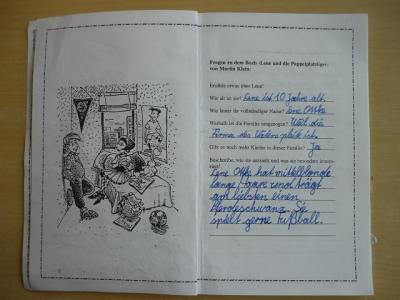 Fragen zu dem Buch «Lene und die Pappelplatztiger»
von Martin Klein:
Erzähle etwas über Lene!
Wie alt ist sie? Lene ist 10 Jahre alt.
Wie lautet ihr vollständiger Name? Lene Offke
Weshalb ist die Familie umgezogen? Weil die
Firma des Vaters pleite ist.
Gibt es noch mehr Kinder in dieser Familie? Ja
Beschreibe, wie sie aussieht und was sie besonders interes-
siert!
Lene Offke hat mittelblonde
lange Haare und trägt
am liebsten einen
Pferdeschwanz. Sie
spielt gerne Fußball.